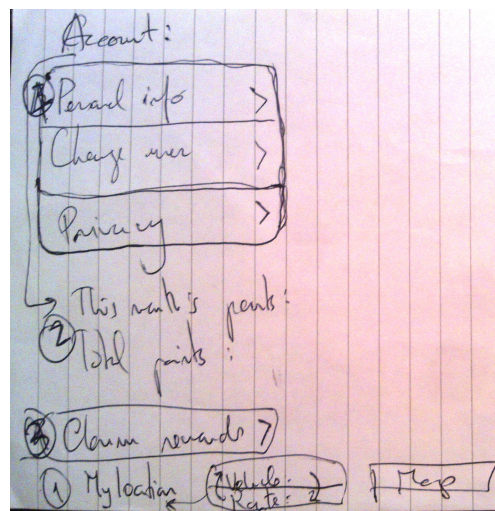 Account:
Personal info >
Change user >
Privacy >
This month's points:
2
Total points :
3 Claim rewards >
1 My location Vehicle:
Route: 2 Map